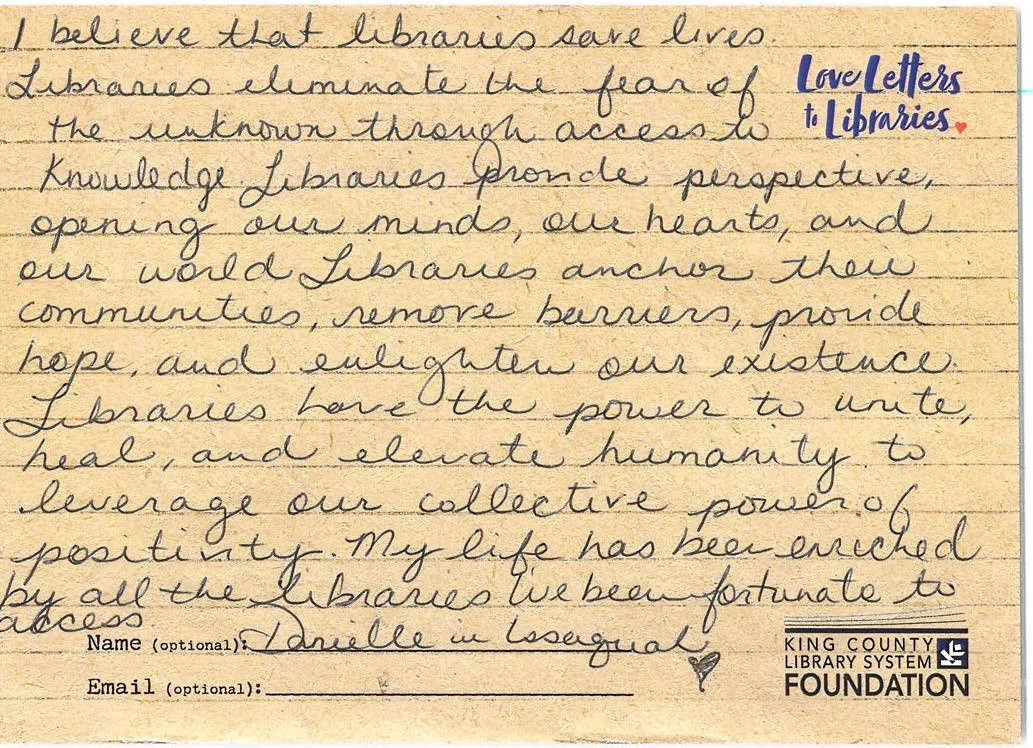 I believe that libraries save lives.
Libraries eliminate the fear of
the unknown through access to
Knowledge. Libraries provide perspective,
opening our minds, our hearts, and
our world. Libraries anchor their
communities, remove barriers, provide
hope, and enlighten our existence.
Libraries have the power to unite,
heal, and elevate humanity to
leverage our collective power of
positivity. My life has been enriched
by all the libraries I've been fortunate to
access
Love Letters
to Libraries.
Name (optional): Danielle in Issaquah
Email (optional):
KING COUNTY
LIBRARY SYSTEM
FOUNDATION